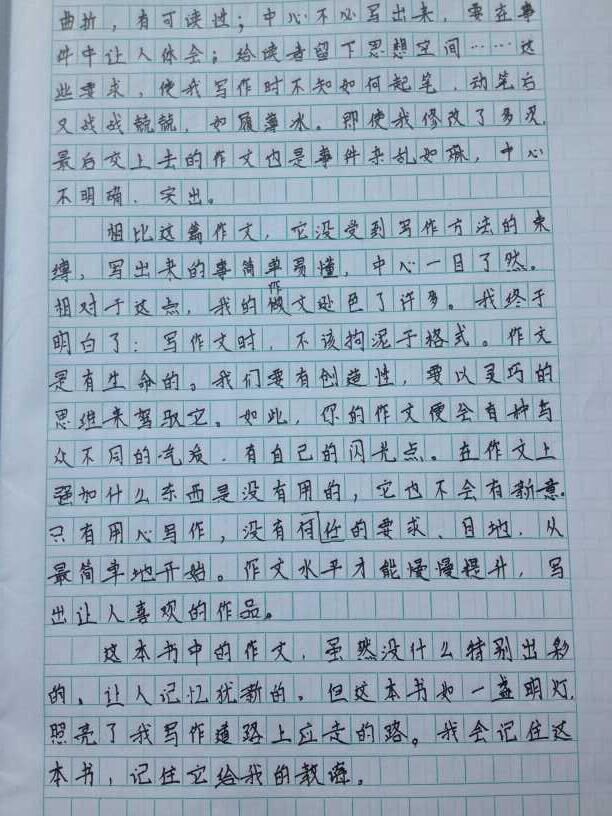 曲折，有可读性；中心不必写出来，要在事
件中让人体会；给读者留下思想空间……这
些要求，使我写作时不知如何起笔，动笔后
又战战兢兢，如履薄冰。即使我修改了多次，
最后交上去的作文也是事件杂乱如麻，中心
不明确、突出。
相比这篇作文，它没受到写作方法的束
缚，写出来的事简单易懂，中心一目了然。
相对于这点，我的作文逊色了许多。我终于
明白了：写作文时，不该拘泥于格式。作文
是有生命的。我们要有创造性，要以灵巧的
思维来驾驭它。如此，你的作文便会有种与
众不同的气质，有自己的闪光点。在作文上
强加什么东西是没有用的，它也不会有新意。
只有用心写作，没有任何的要求、目地，从
最简单地开始。作文水平才能慢慢提升，写
出让人喜欢的作品。
这本书中的作文，虽然没什么特别出彩
的，让人记忆犹新的，但这本书如一盏明灯，
照亮了我写作道路上应走的路。我会记住这
本书，记住它给我的教诲。